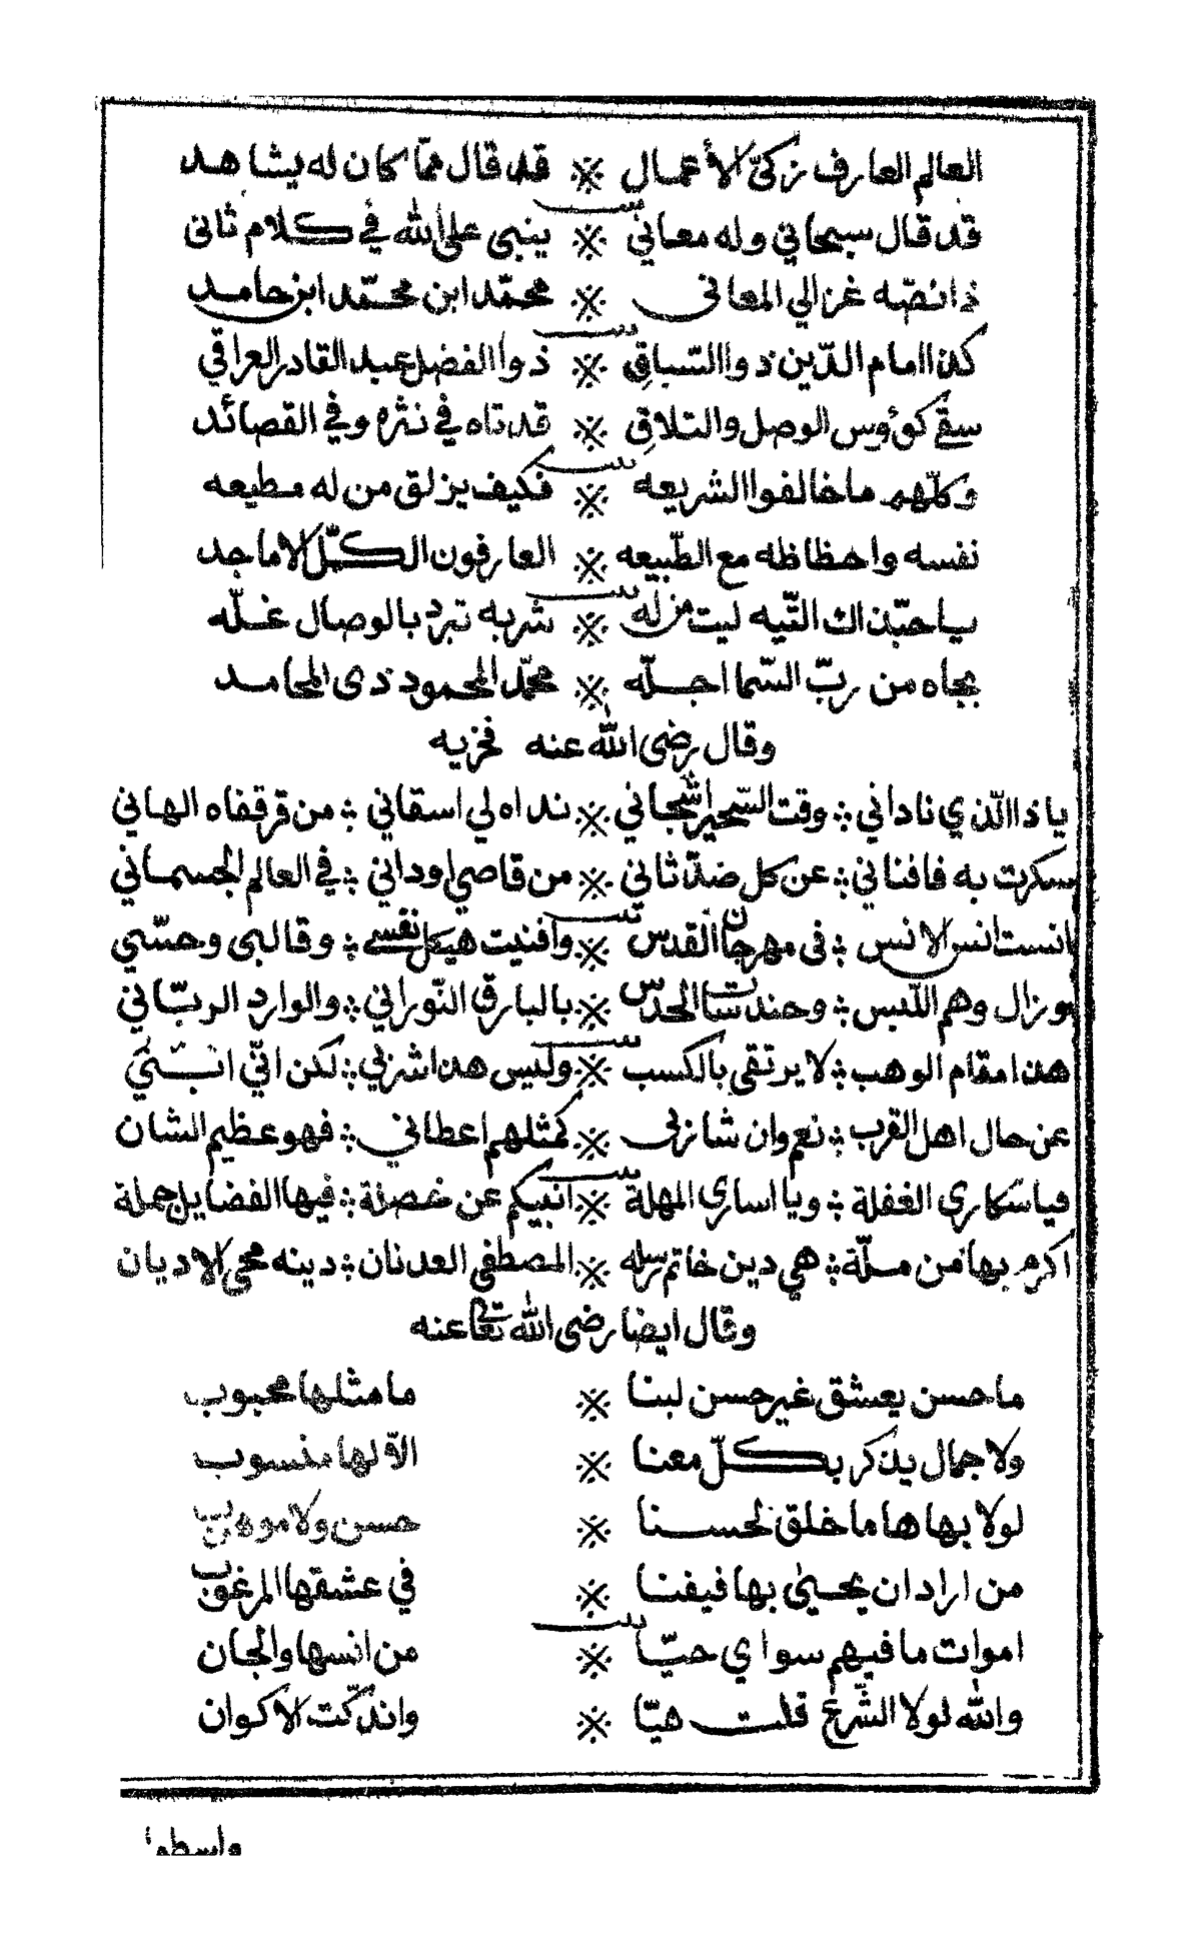 العالم العارف زكيّ الأعمال ※ قد قال ممّا كان له يشاهد
قد قال سبحاني وله معاني ※ ينبى على الله في كلام ثانى
ذا نصّه غزالي المعانى ※ محمّد ابن محمّد ابن حامد
كذا امام الدّين ذوا السّباقِ ※ ذوا الفضل عبد القادر العراقي
سقي كوُوس الوصل والتلاقِ ※ قد تاه في نثره وفي القصائد
وكلّهم ما خالفوا الشريعه ※ فكيف يزلق من له مطيعه
نفسه واحظاظه مع الطّبيعه ※ العارفون الكمّل الاماجد
ياحبّذاك التّيه ليت من له ※ شربه تبرد بالوصال غلّه
بجاه من ربّ السّما اجلّه ※ محمّد المحمود ذى المحامد
وقال رضى الله عنه فخزيه
يا ذا الّذي ناداني ؞ وقت السّحير اشجاني ※ نداه لي اسقاني ؞ من قرقفاه الهاني
سكرت به فافناني ؞ عن كل ضدّ ثاني ※ من قاصي اوداني ؞ في العالم الجسماني
انست انس الانس ؞ فى مهرجان القدس ※ وافنيت هيكل نفسي ؞ وقالبى وحسّي
وزال وهم اللبس ؞ وحندسات الحدس ※ بالبارق النّوراني ؞ والوارد الربّاني
هذا مقام الوهب ؞ لا يرتقي بالكسب ※ وليس هذا شربي ؞ لكن انّي انبّئي
عن حال اهل القرب ؞ نعم وان شا ربى ※ كمثلهم اعطاني ؞ فهو عظيم الشان
فياسكارى الغفلة ؞ ويا اسارى المهلة ※ انبيكم عن خصلة ؞ فيها الفضايل جملة
اكرم بها من ملّة ؞ هي دين خاتم رسله ※ المصطفى العدنان ؞ دينه محى الاديان
وقال ايضا رضى الله تعالى عنه
ما حسن يعشق غير حسن لبنا ※ ما مثلها محبوب
ولا جمال يذكر بكلّ معنا ※ الاّ لها منسوب
لولا بهاها ما خلق لحسنا ※ حسن ولا موهوب
من اراد ان يحيىٰ بها فيفنا ※ في عشقها المرغوب
اموات ما فيهم سواي حيّا ※ من انسها والجان
والله لولا الشّرع قلت هيّا ※ واندكّت الاكوان